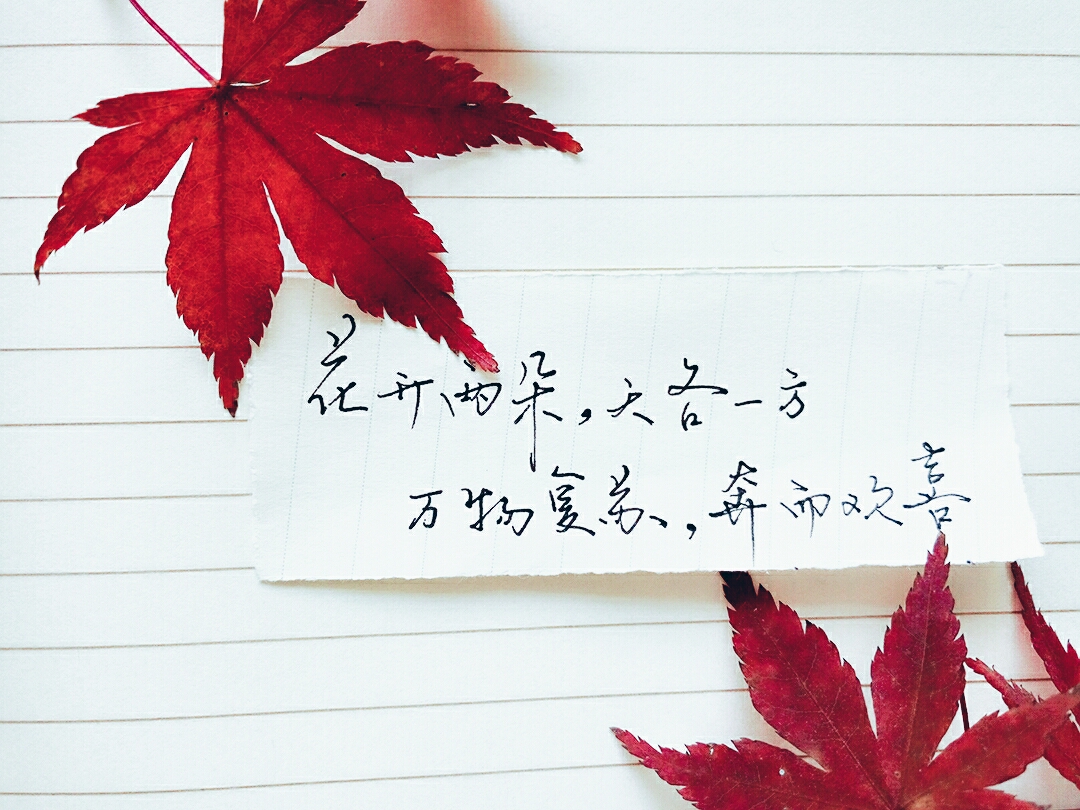 花开两朵,天各一方
万物复苏,奔而欢喜